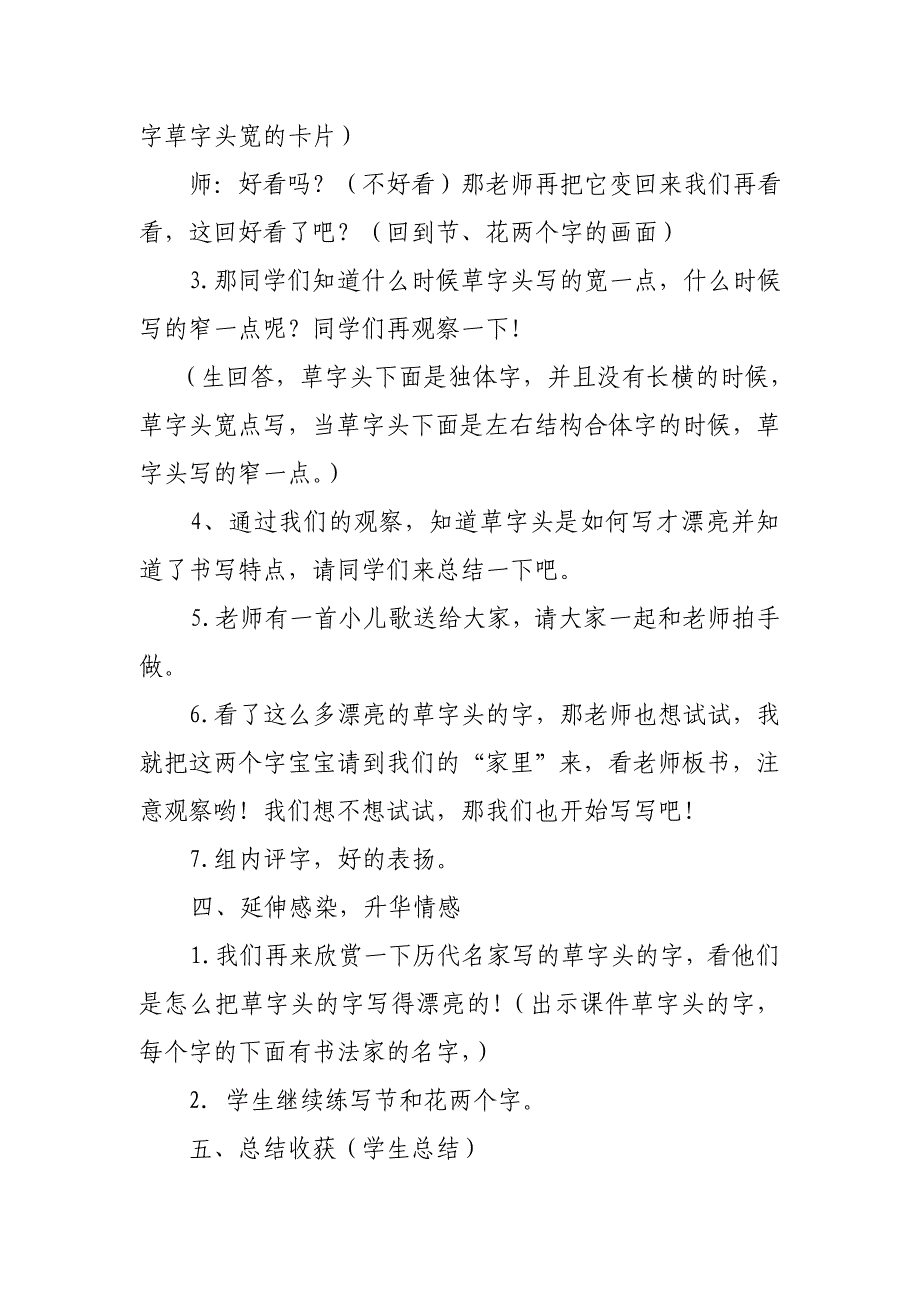 字草字头宽的卡片）
师：好看吗？（不好看）那老师再把它变回来我们再看
看，这回好看了吧？（回到节、花两个字的画面）
3.那同学们知道什么时候草字头写的宽一点，什么时候
写的窄一点呢？同学们再观察一下！
（生回答，草字头下面是独体字，并且没有长横的时候，
草字头宽点写，当草字头下面是左右结构合体字的时候，草
字头写的窄一点。）
4、通过我们的观察，知道草字头是如何写才漂亮并知
道了书写特点，请同学们来总结一下吧。
5.老师有一首小儿歌送给大家，请大家一起和老师拍手
做。
6.看了这么多漂亮的草字头的字，那老师也想试试，我
就把这两个字宝宝请到我们的“家里”来，看老师板书，注
意观察哟！我们想不想试试，那我们也开始写写吧！
7.组内评字，好的表扬。
四、延伸感染，升华情感
1.我们再来欣赏一下历代名家写的草字头的字，看他们
是怎么把草字头的字写得漂亮的！（出示课件草字头的字，
每个字的下面有书法家的名字，）
2. 学生继续练写节和花两个字。
五、总结收获（学生总结）